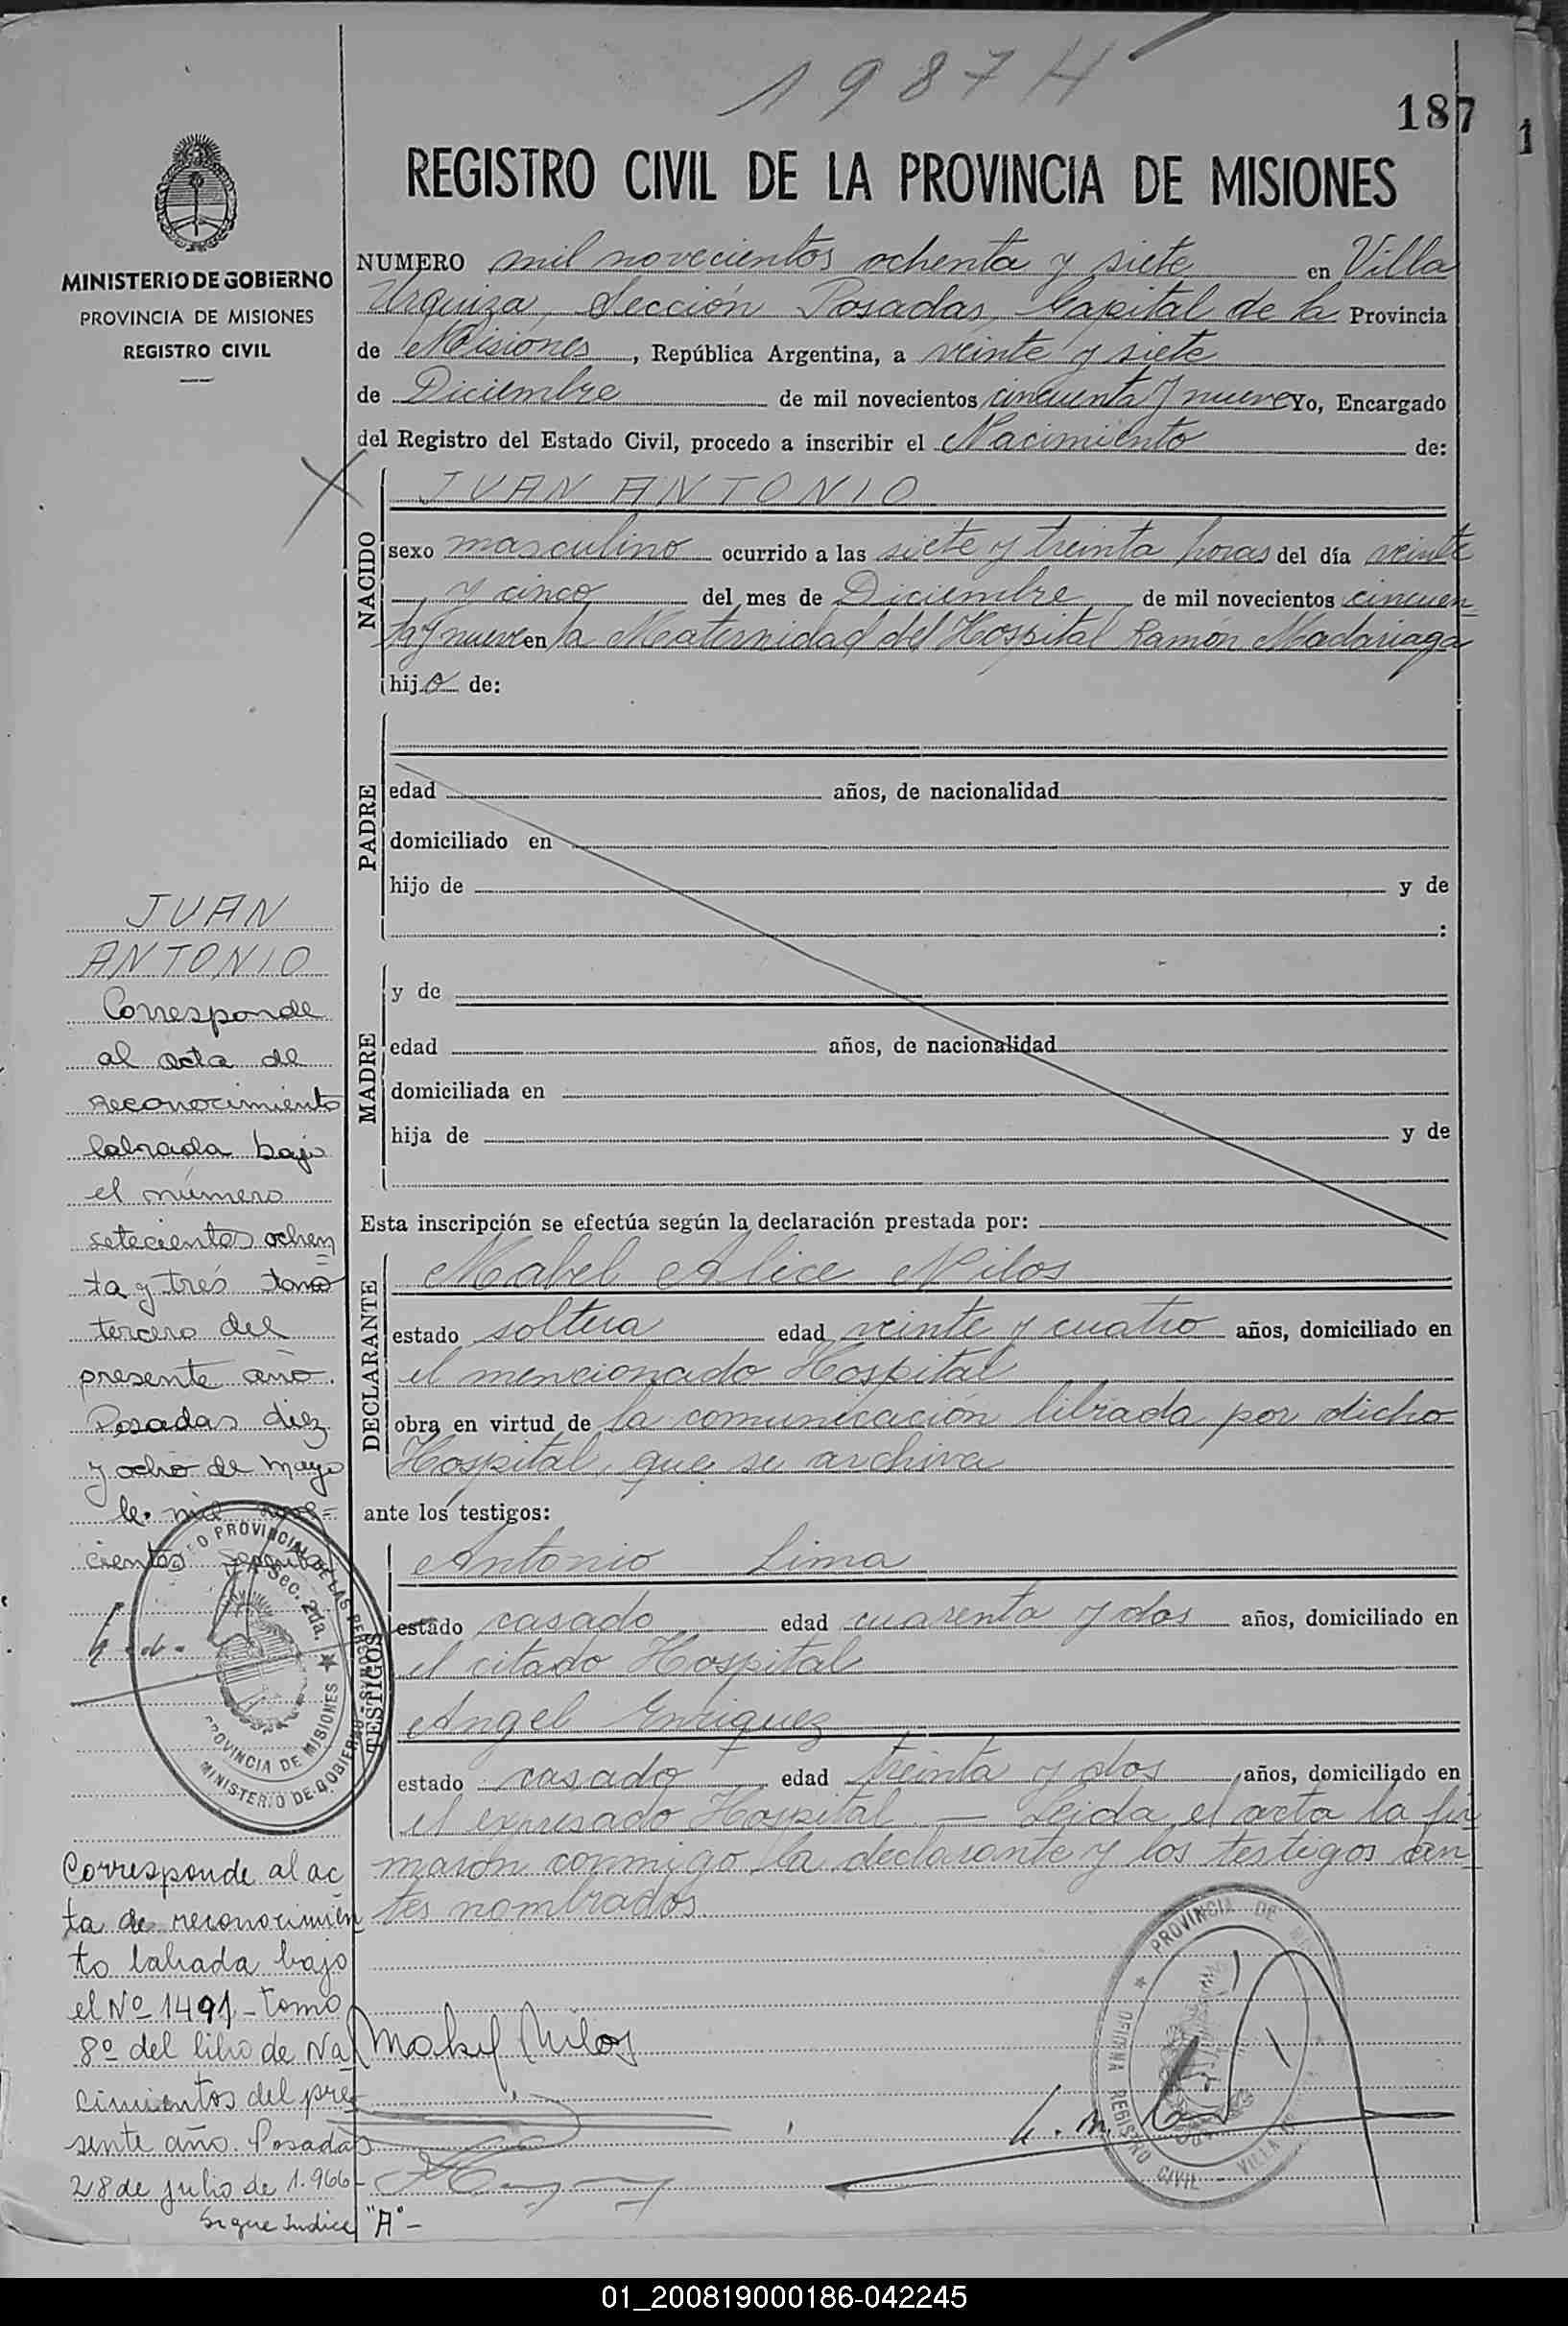 1987 H
187
1
REGISTRO CIVIL DE LA PROVINCIA DE MISIONES
MINISTERIO DE GOBIERNO
PROVINCIA DE MISIONES
REGISTRO CIVIL
NUMERO mil novecientos ochenta y siete en Villa
Urquiza, Sección Posadas, Capital de la Provincia
de Misiones, República Argentina, a veinte y siete
de Diciembre de mil novecientos cincuenta y nueve Yo, Encargado
del Registro del Estado Civil, procedo a inscribir el Nacimiento de:
NACIDO
JUAN ANTONIO
sexo masculino ocurrido a las siete y treinta horas del día veinte
y cinco del mes de Diciembre de mil novecientos cincuen
ta y nueve en la Maternidad del Hospital Ramón Madariaga
hijo de:
PADRE
edad años, de nacionalidad
domiciliado en
hijo de y de
:
MADRE
y de
edad años, de nacionalidad
domiciliada en
hija de y de
Esta inscripción se efectúa según la declaración prestada por:
DECLARANTE
Mabel Alice Nilos
estado soltera edad veinte y cuatro años, domiciliado en
el mencionado Hospital
obra en virtud de la comunicación librada por dicho
Hospital, que se archiva
ante los testigos:
TESTIGOS
Antonio Lima
estado casado edad cuarenta y dos años, domiciliado en
el citado Hospital
Angel Enriquez
estado casado edad treinta y dos años, domiciliado en
el expresado Hospital — Leida el acta la fir
maron conmigo, la declarante y los testigos an
tes nombrados.
Mabel Nilos
PROVINCIA DE
OFICINA REGISTRO CIVIL - VILLA
JUAN
ANTONIO
Corresponde
al acta de
reconocimiento
labrada bajo
el número
setecientos ochen
ta y tres tomo
tercero del
presente año.
Posadas diez
y ocho de Mayo
de mil nove=
cientos
PROVINCIAL DE LAS PERSONAS
Sec. 2da.
PROVINCIA DE MISIONES
MINISTERIO DE GOBIERNO
Corresponde al ac
ta de reconocimien
to labrada bajo
el Nº 1491 - tomo
8º del libro de Na
cimientos del pre
sente año. Posadas
28 de julio de 1.966-
Sigue Indice "A"-
01_200819000186-042245